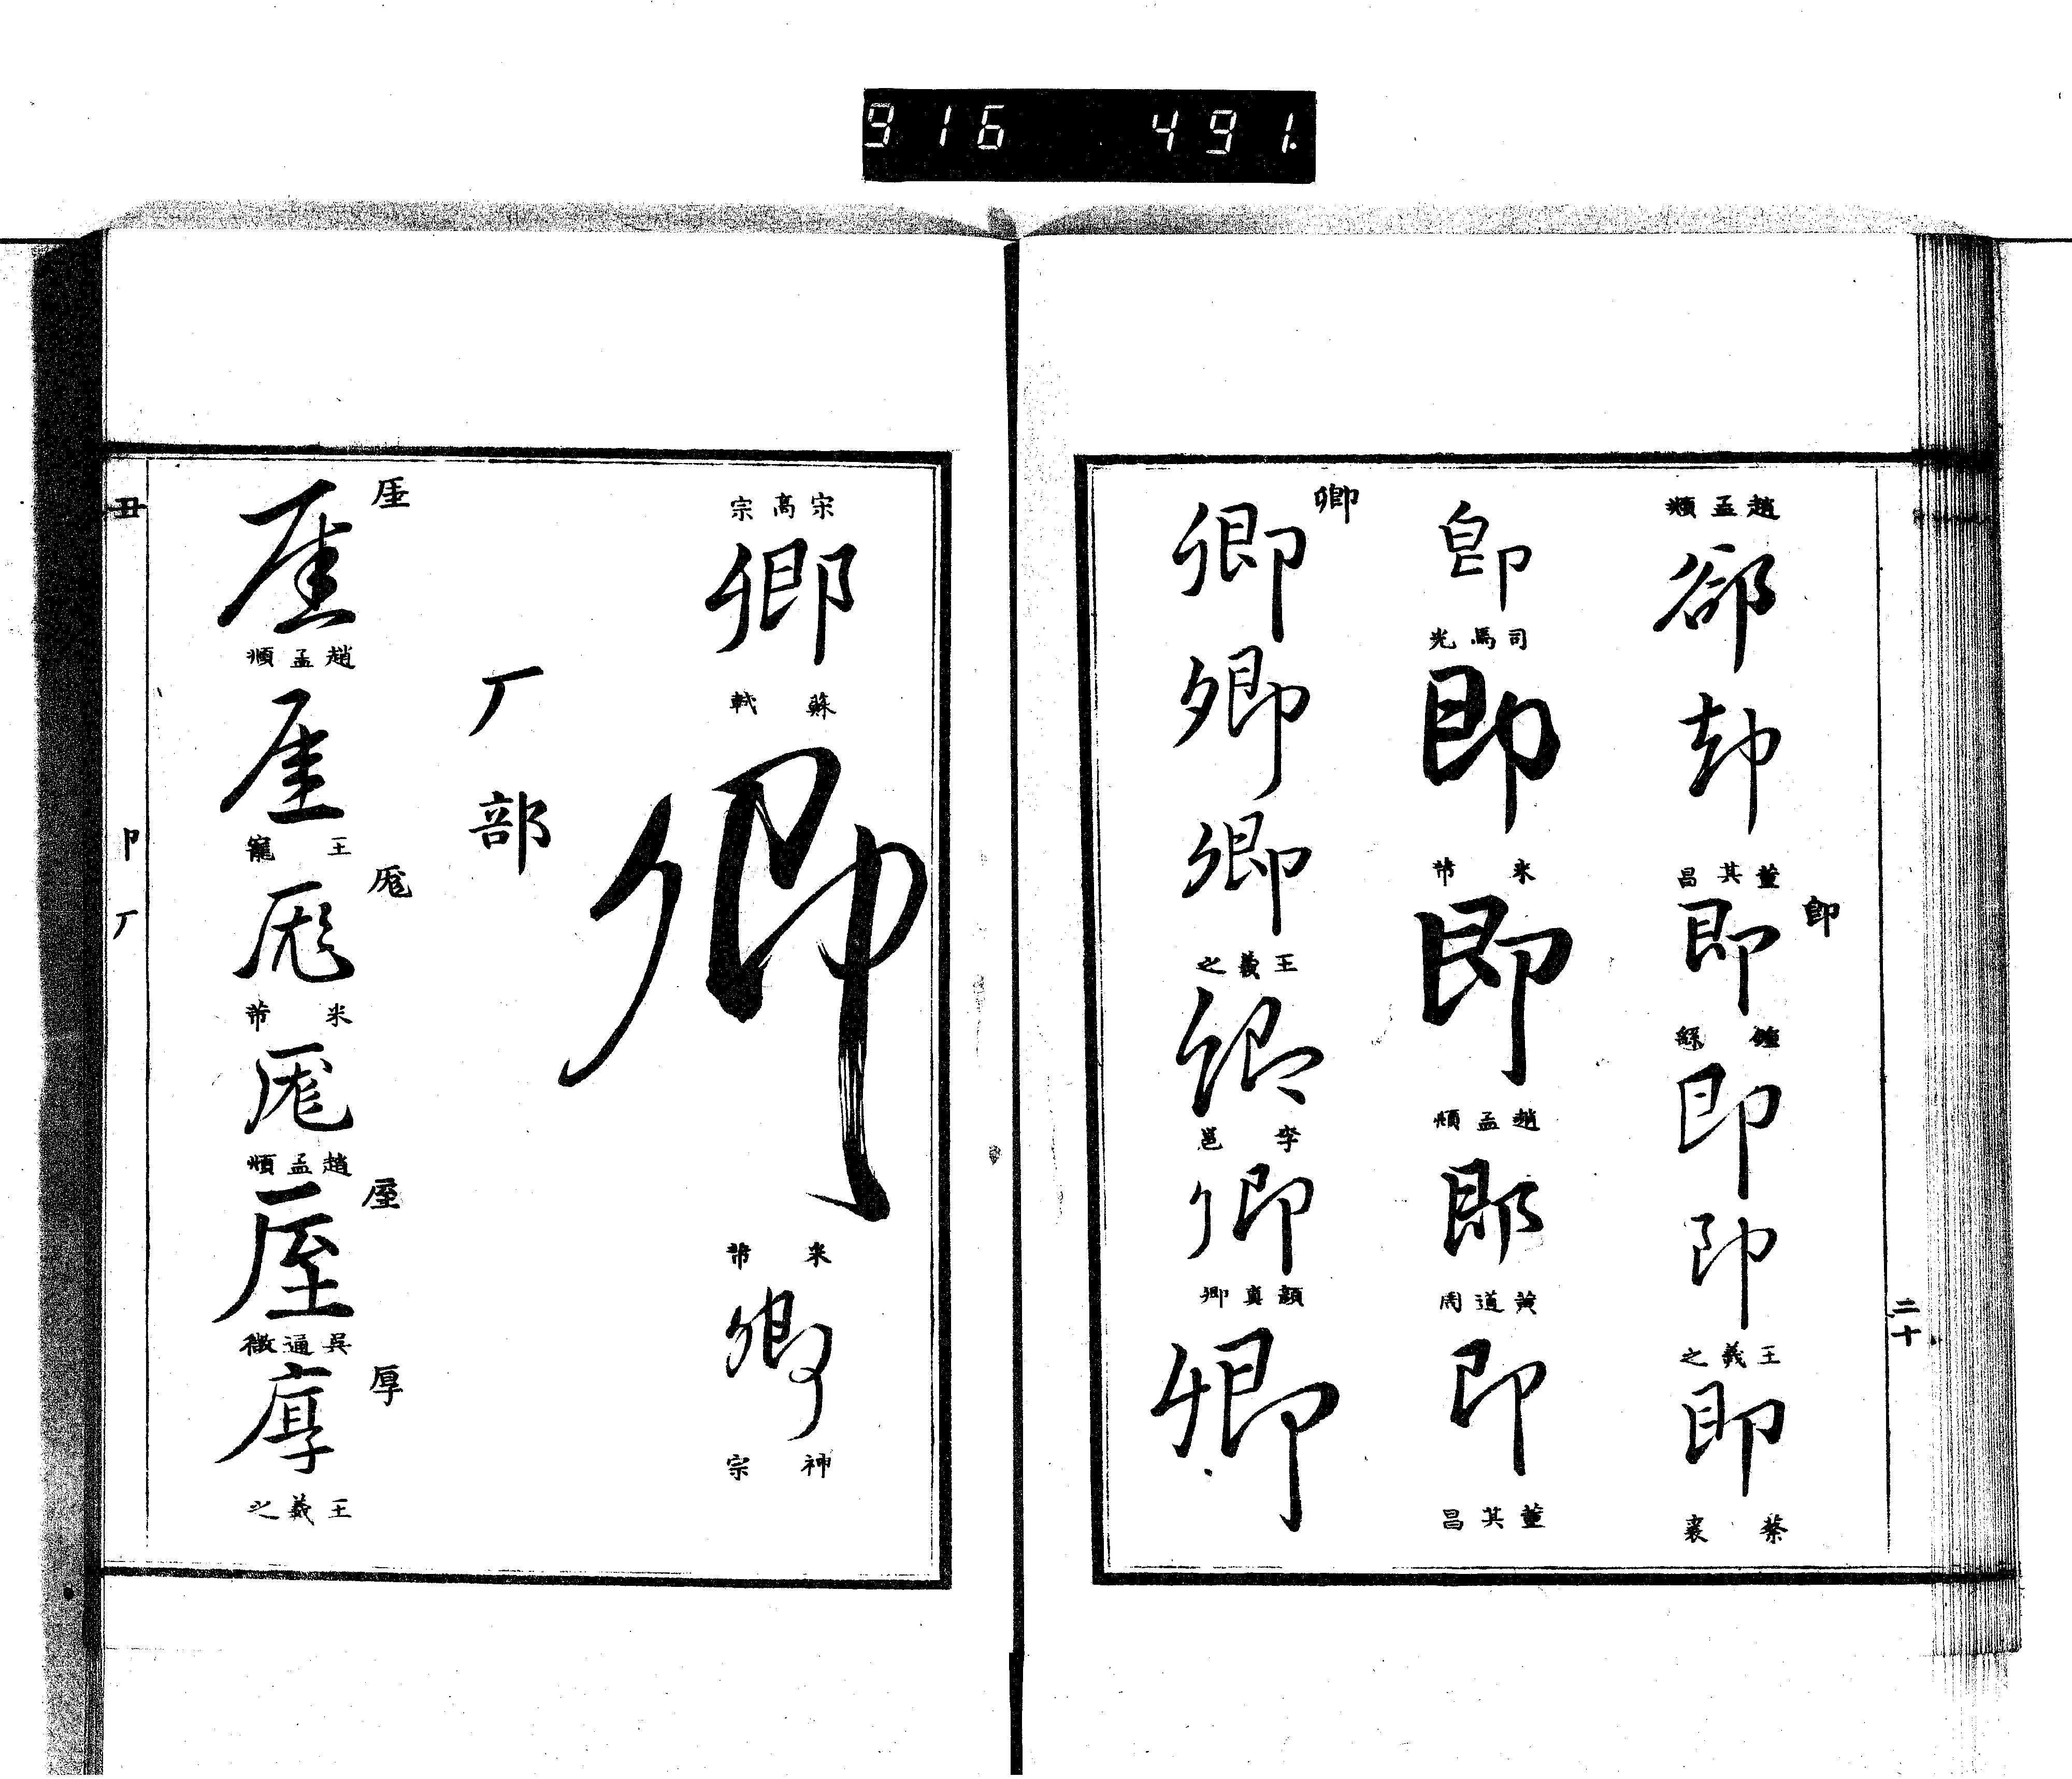 916 491.
二十
趙孟頫
郤
却
董其昌
卽
即
鍾繇
即
即
王羲之
即
蔡襄
卽
司馬光
即
米芾
即
趙孟頫
即
黃道周
即
董其昌
卿
卿
卿
卿
王羲之
卿
李邕
卿
顏真卿
卿
宋高宗
卿
蘇軾
卿
米芾
卿
神宗
厂部
厓
厓
趙孟頫
厓
王寵
厖
厖
米芾
厖
趙孟頫
厔
厔
吳通微
厚
厚
王羲之
丑
卩
厂